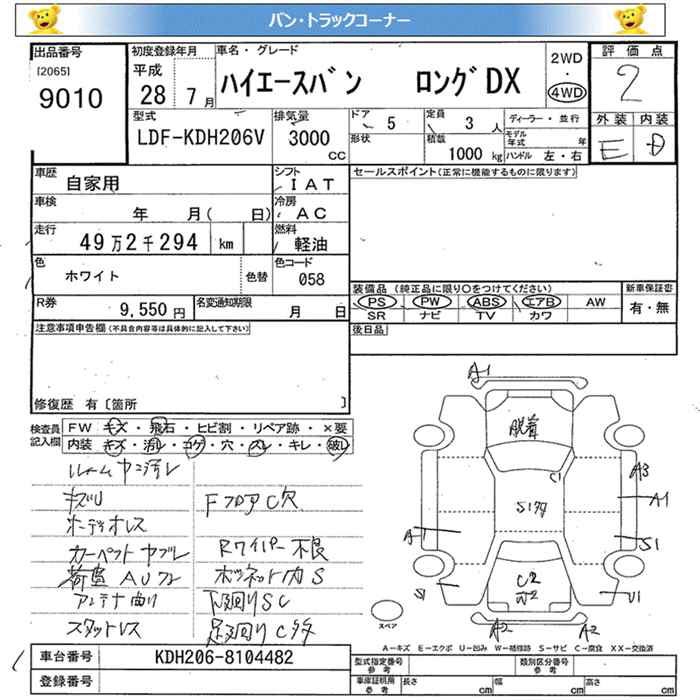 バン・トラックコーナー
出品番号
[2065]
9010
初度登録年月
平成
28年 7月
車名・グレード
ハイエースバン ロングDX
2WD
・
4WD
評価点
2
外装 内装
E D
型式
LDF-KDH206V
排気量
3000
CC
ドア 5
定員 3 人
ディーラー・並行
形状
積載 1000 kg
モデル年式 年
ハンドル 左・右
車歴
自家用
シフト
IAT
車検
年 月( 日)
冷房
AC
走行
49万2千294 km
燃料
軽油
色
ホワイト
色替
色コード
058
R券
9,550円
名変通知期限
月 日
セールスポイント(正常に機能するものに限ります)
装備品 (純正品に限り○をつけてください) 新車保証書
PS PW ABS エアB AW 有・無
SR ナビ TV カワ
後日品
注意事項申告欄(不具合内容等は具体的に記入して下さい)
修復歴 有〔箇所 〕
検査員記入欄
FW キズ・飛石・ヒビ割・リペア跡・×要
内装 キズ・汚れ・コゲ・穴・スレ・キレ・破れ
ルームヤニ汚レ
キズU
FフロアC穴
オーディオレス
カーペットヤブレ
Rワイパー不良
荷室AUフレ
ボンネット内S
アンテナ曲り
下廻りSC
スタットレス
足廻りC多
A1
脱着
C1
S1多
A3
A1
A1
S1
S1
C2
W2
U1
A2
A2
スペア
A-キズ E-エクボ U-凹み W-補修跡 S-サビ C-腐食 XX-交換済
車台番号 KDH206-8104482
登録番号
型式指定番号参考 類別区分番号参考
車庫証明用参考 長さ cm 幅 cm 高さ cm